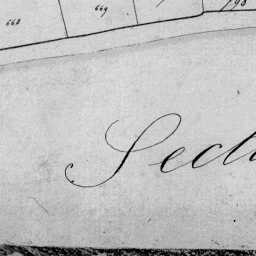 668 669 798
Secti